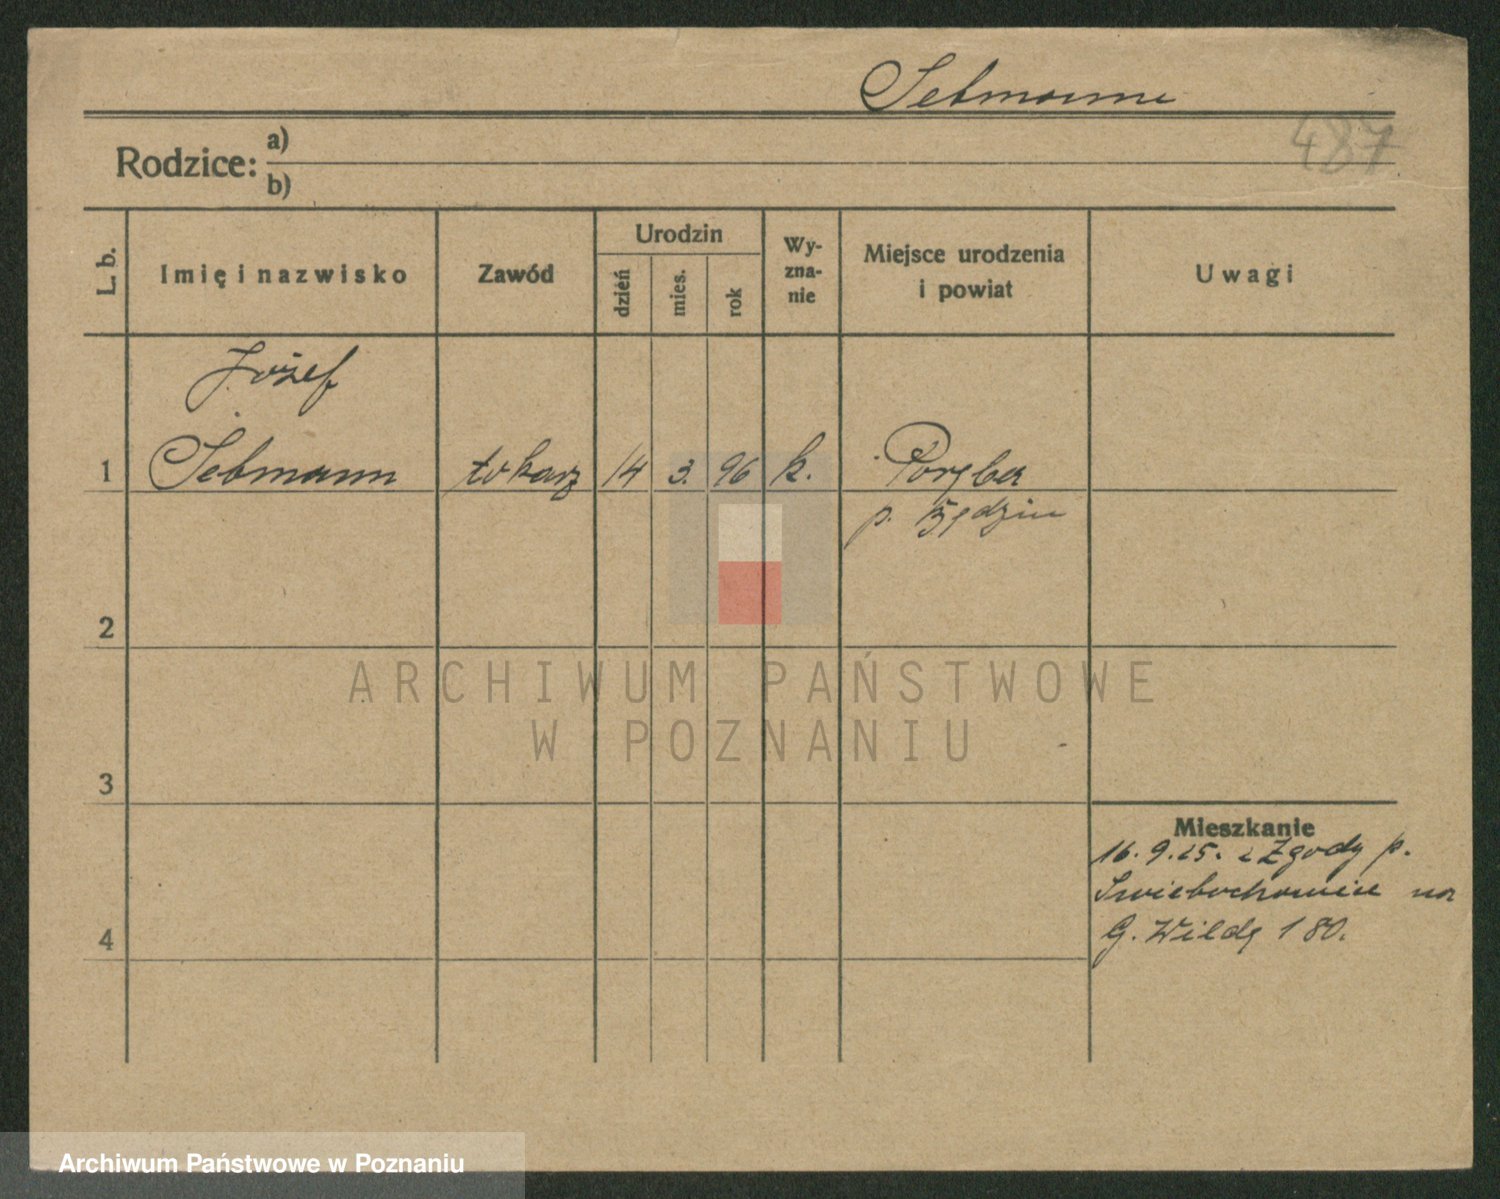 Sebmann
487
Rodzice: a)
b)
L. b.
Imię i nazwisko
Zawód
Urodzin
dzień
mies.
rok
Wy-
zna-
nie
Miejsce urodzenia
i powiat
Uwagi
Józef
1 Sebmann tokarz 14 3. 96 k. Poręba
p. Będzin
2
ARCHIWUM PAŃSTWOWE
W POZNANIU
3
Mieszkanie
16. 9. 25. z Zgody p.
Swiebochowice na
4
G. Wildę 180.
Archiwum Państwowe w Poznaniu